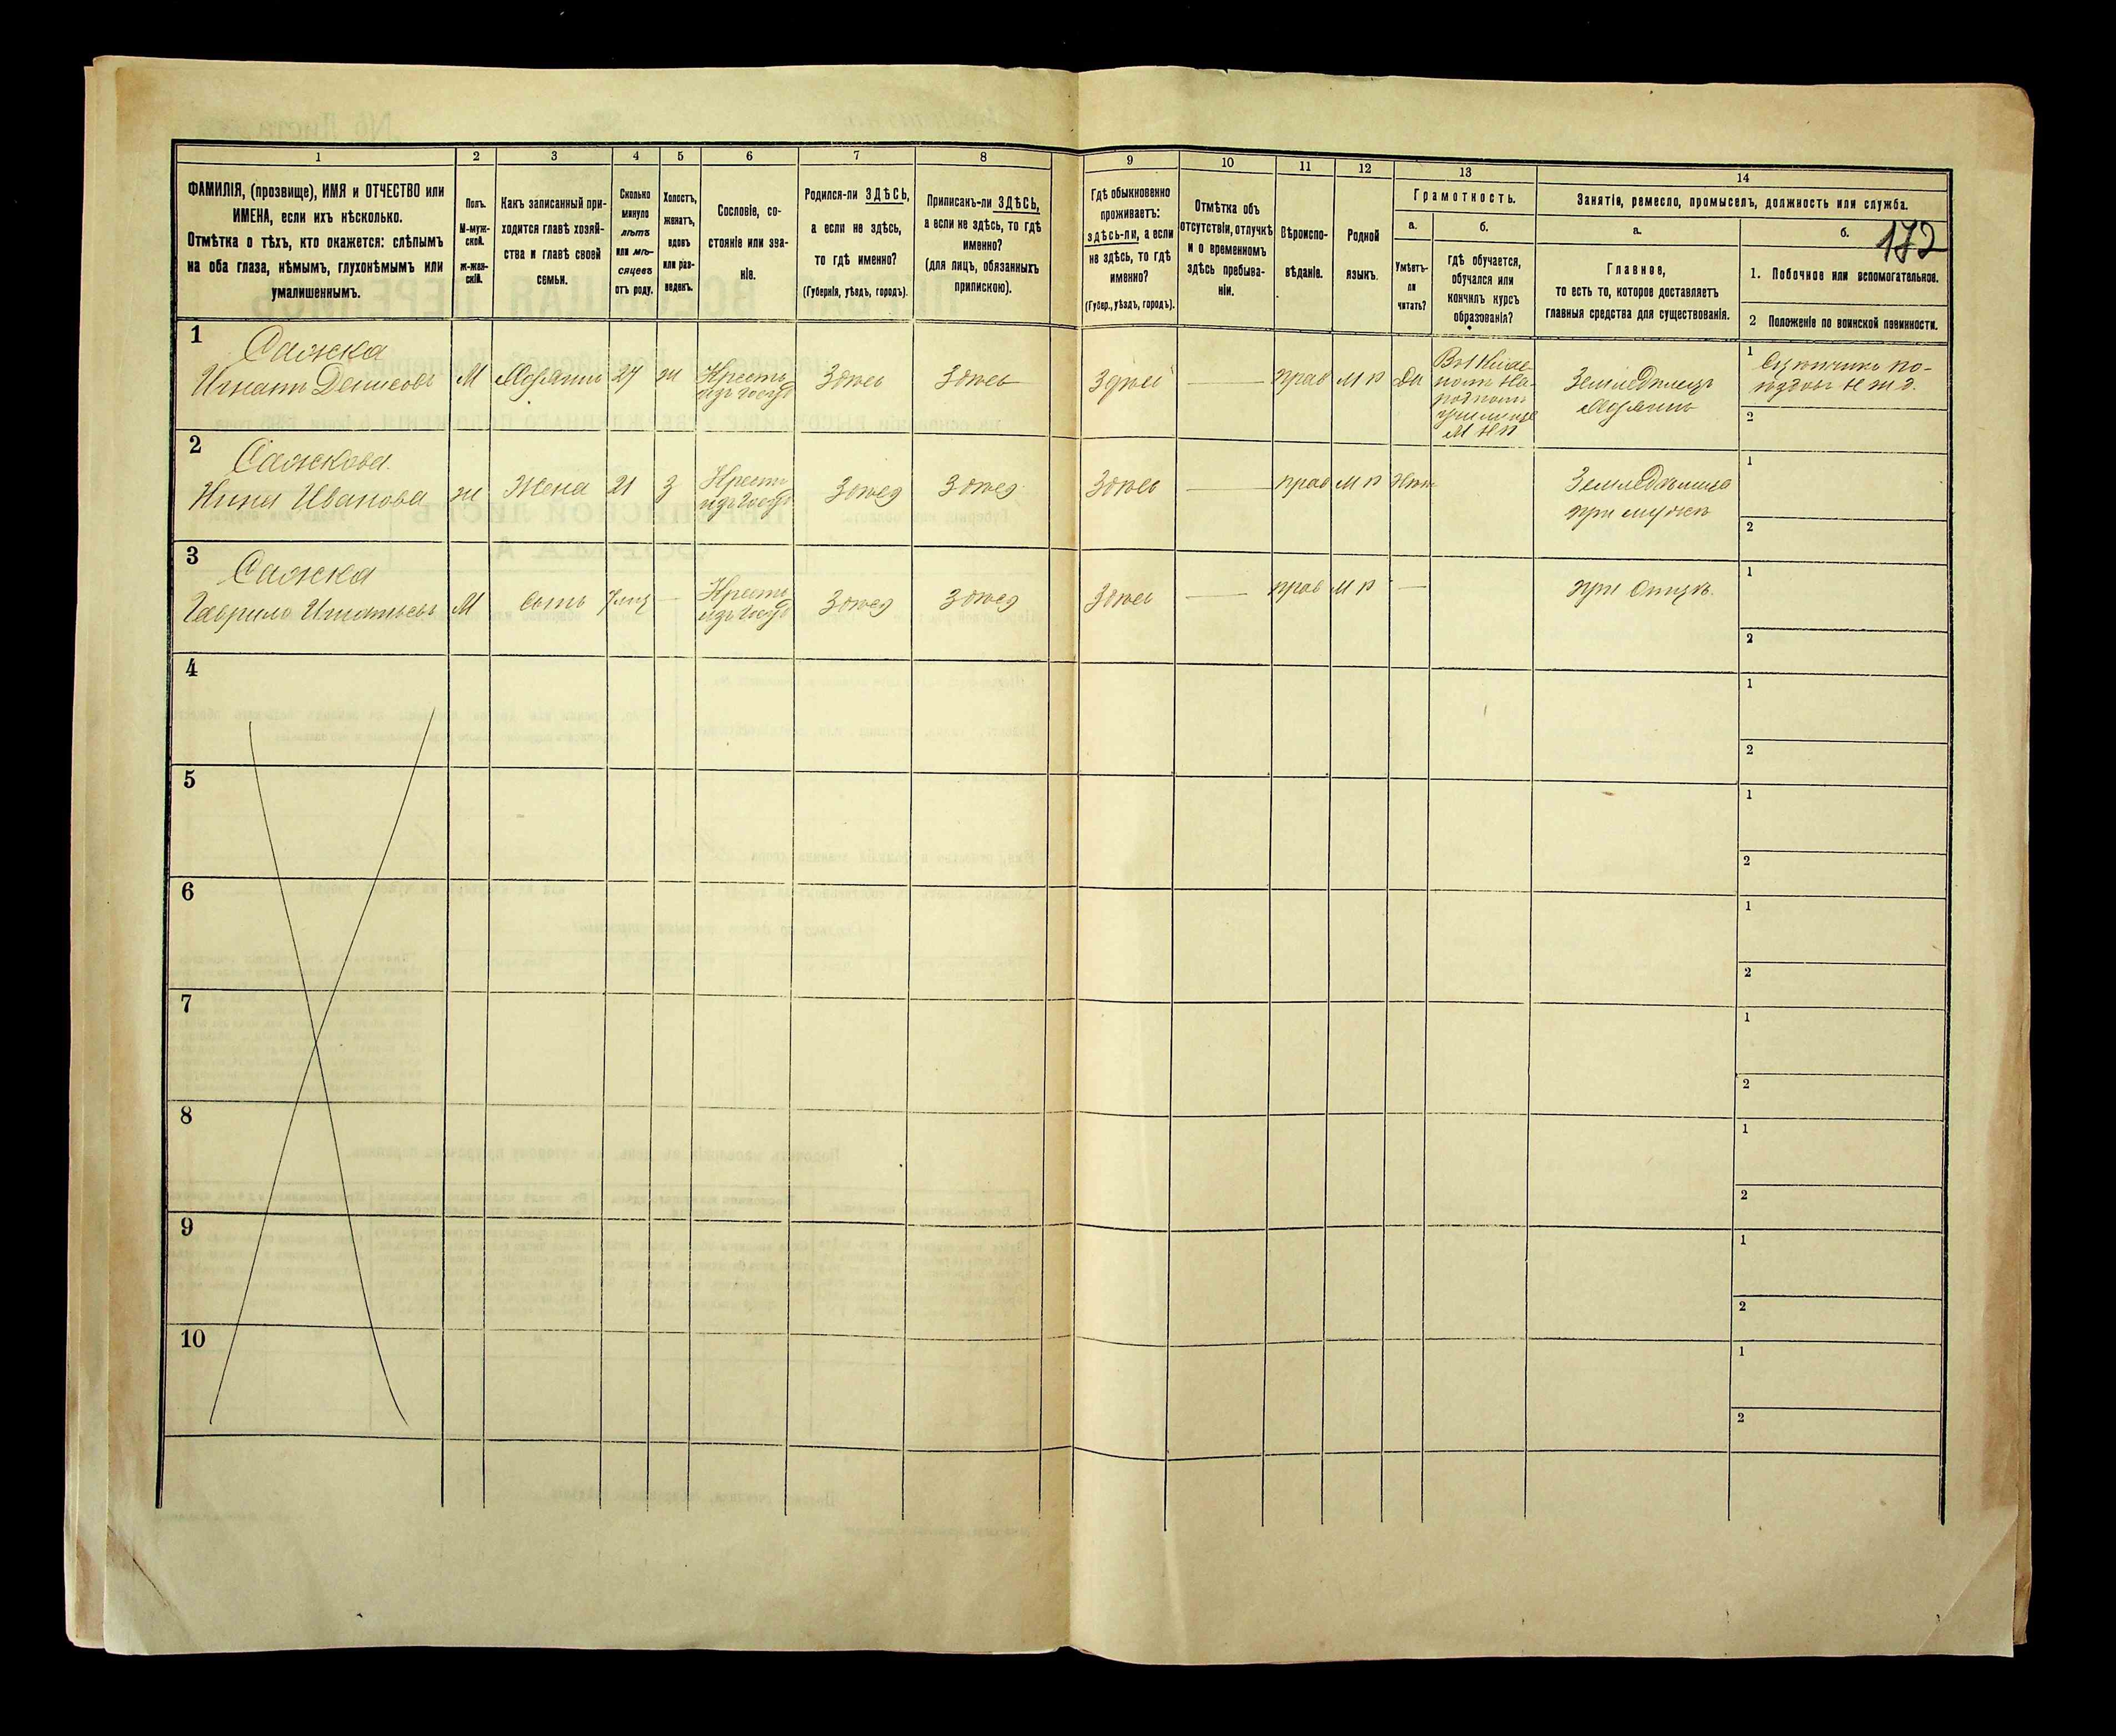 1 2 3 4 5 6 7 8 9 10 11 12 13 14
ФАМИЛІЯ, (прозвище), ИМЯ и ОТЧЕСТВО или
ИМЕНА, если ихъ нѣсколько.
Отмѣтка о тѣхъ, кто окажется: слѣпымъ
на оба глаза, нѣмымъ, глухонѣмымъ или
умалишеннымъ.
Полъ.
М-муж-
ской.
ж-жен-
скій.
Какъ записанный при-
ходится главѣ хозяй-
ства и главѣ своей
семьи.
Сколько
минуло
лѣтъ
или мѣ-
сяцевъ
отъ роду.
Холостъ,
женатъ,
вдовъ
или раз-
веденъ.
Сословіе, со-
стояніе или зва-
ніе.
Родился-ли ЗДѢСЬ,
а если не здѣсь,
то гдѣ именно?
(Губернія, уѣздъ, городъ).
Приписанъ-ли ЗДѢСЬ,
а если не здѣсь, то гдѣ
именно?
(для лицъ, обязанныхъ
припискою).
Гдѣ обыкновенно
проживаетъ:
здѣсь-ли, а если
не здѣсь, то гдѣ
именно?
(Губер., уѣздъ, городъ).
Отмѣтка объ
отсутствіи, отлучкѣ
и о временномъ
здѣсь пребыва-
ніи.
Вѣроиспо-
вѣданіе.
Родной
языкъ.
Грамотность.
а.
Умѣетъ-
ли
читать?
б.
гдѣ обучается,
обучался или
кончилъ курсъ
образованія?
Занятіе, ремесло, промыселъ, должность или служба.
а.
Главное,
то есть то, которое доставляетъ
главныя средства для существованія.
б.
172
1. Побочное или вспомогательное.
2 Положеніе по воинской повинности.
1
Сажка
Игнатъ Денисовъ М Хозяинъ 27 ж Крестъ
изъ госуд
Здѣсь Здѣсь Здѣсь прав М Р Да
народномъ
училищѣ
М Н П
Земледѣлецъ
хозяинъ
1
2
2
Сажкова
Ивановa ж Жена 21 з Крест
изъ госуд
Здѣсь Здѣсь Здѣсь прав М Р Нѣтъ
Земледѣлица
при мужѣ
1
2
3
Сажка
Гаврило Игнатьевъ М сынъ Крест
изъ госуд
Здѣсь Здѣсь Здѣсь прав М Р
при Отцѣ.
1
2
4
1
2
5
1
2
6
1
2
7
1
2
8
1
2
9
1
2
10
1
2